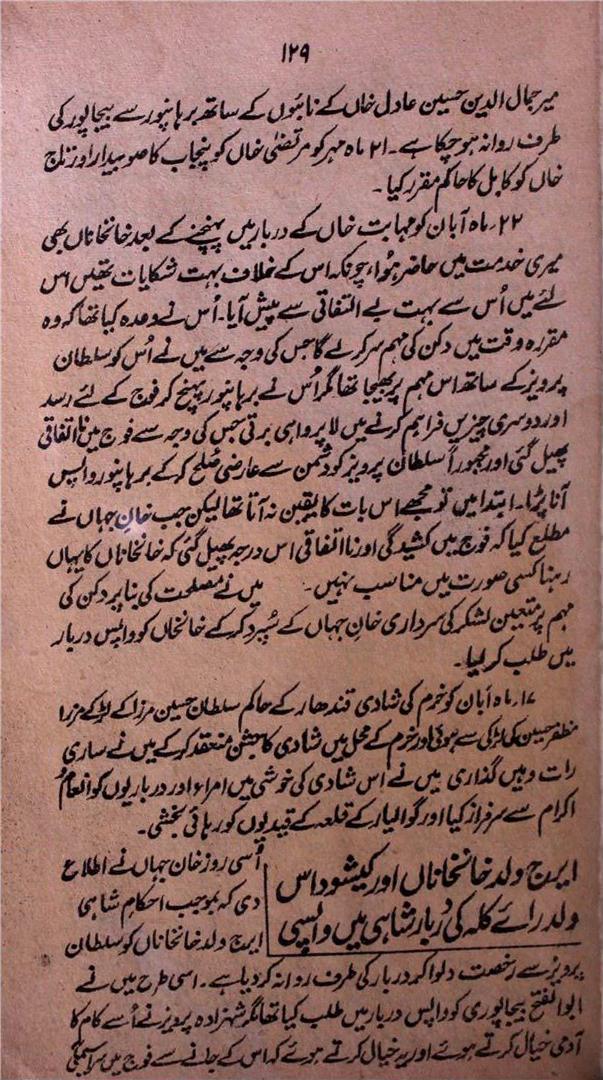 ۱۲۹
میر جمال الدین حسین عادل خاں کے نائبوں کے ساتھ برہانپور سے بیجاپور کی
طرف روانہ ہو چکا ہے۔ ۲۱ ماہ مہر کو مرتضیٰ خاں کو پنجاب کا صوبیدار اور تاج
خاں کو کابل کا حاکم مقرر کیا۔
۲۲۔ ماہ آبان کو مہابت خاں کے دربار میں پہنچنے کے بعد خانخاناں بھی
میری خدمت میں حاضر ہوا، چونکہ اس کے خلاف بہت شکایات تھیں اس
لئے میں اُس سے بہت بے التفاتی سے پیش آیا۔ اُس نے وعدہ کیا تھا کہ وہ
مقررہ وقت میں دکن کی مہم سر کر لے گا جس کی وجہ سے میں نے اُس کو سلطان
پرویز کے ساتھ اس مہم پر بھیجا تھا مگر اُس نے برہانپور پہنچ کر فوج کے لئے رسد
اور دوسری چیزیں فراہم کرنے میں لا پرواہی برتی جس کی وجہ سے فوج میں نا اتفاقی
پھیل گئی اور مجبوراً سلطان پرویز کو دشمن سے عارضی صلح کر کے برہانپور واپس
آنا پڑا۔ ابتدا میں تو مجھے اس بات کا یقین نہ آتا تھا لیکن جب خان جہاں نے
مطلع کیا کہ فوج میں کشیدگی اور نا اتفاقی اس درجہ پھیل گئی کہ خانخاناں کا یہاں
رہنا کسی صورت میں مناسب نہیں۔ میں نے مصلحت کی بنا پر دکن کی
مہم پر متعین لشکر کی سرداری خان جہاں کے سُپرد کر کے خانخاں کو واپس دربار
میں طلب کر لیا۔
۱۷۔ ماہ آبان کو خرم کی شادی قندھار کے حاکم سلطان حسین مرزا کے لڑکے مرزا
مظفر حسین کی لڑکی سے ہوئی اور خرم کے محل میں شادی کا جشن منعقد کر کے میں نے ساری
رات وہیں گذاری میں نے اس شادی کی خوشی میں امراء اور درباریوں کو انعام و
اکرام سے سرفراز کیا اور گوالیار کے قلعہ کے قیدیوں کو رہائی بخشی۔
ایرج ولد خانخاناں اور کیشو داس
ولد رائے کلہ کی دربار شاہی میں واپسی
اُسی روز خان جہاں نے اطلاع
دی کہ بموجب احکام شاہی
ایرج ولد خانخاناں کو سلطان
پرویز سے رخصت دلوا کر دربار کی طرف روانہ کر دیا ہے۔ اسی طرح میں نے
ابوالفتح بیجاپوری کو واپس دربار میں طلب کیا تھا مگر شہزادہ پرویز نے اُسے کام کا
آدمی خیال کرتے ہوئے اور یہ خیال کرتے ہوئے کہ اس کے جانے سے فوج میں